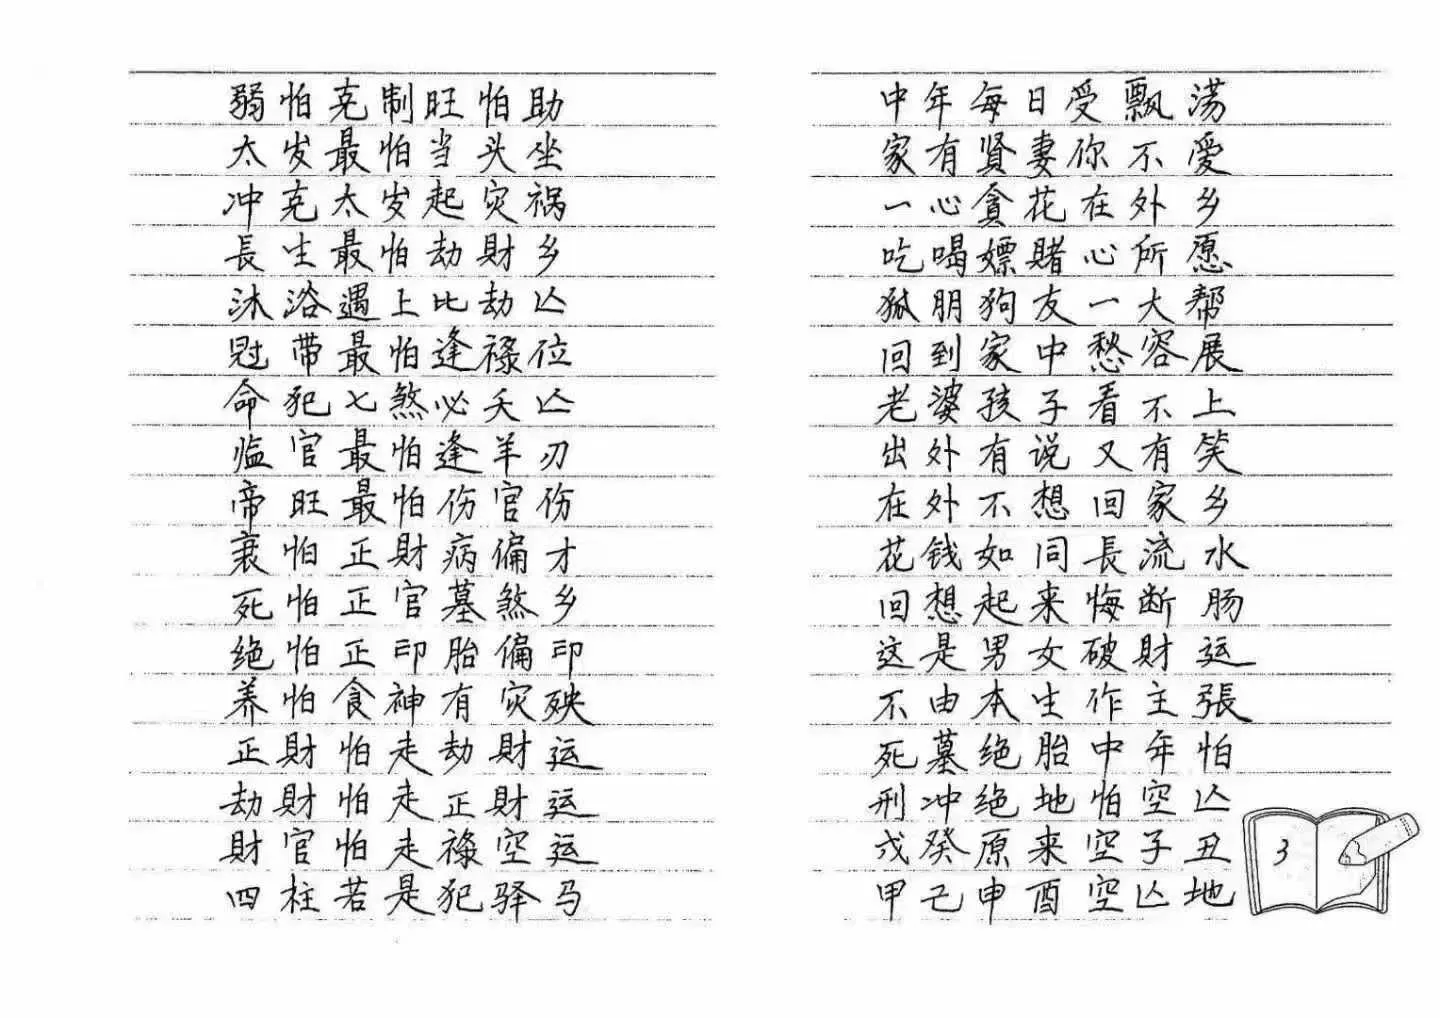 弱怕克制旺怕助
太岁最怕当头坐
冲克太岁起灾祸
長生最怕劫財乡
沐浴遇上比劫亾
冠带最怕逢祿位
命犯七煞必夭亾
临官最怕逢羊刃
帝旺最怕伤官伤
衰怕正財病偏才
死怕正官墓煞乡
绝怕正印胎偏印
养怕食神有灾殃
正財怕走劫財运
劫財怕走正財运
財官怕走祿空运
四柱若是犯驿马
中年每日受飘荡
家有贤妻你不愛
一心貪花在外乡
吃喝嫖賭心所愿
狐朋狗友一大帮
回到家中愁容展
老婆孩子看不上
出外有说又有笑
在外不想回家乡
花钱如同長流水
回想起来悔断肠
这是男女破財运
不由本生作主張
死墓绝胎中年怕
刑冲绝地怕空亾
戊癸原来空子丑
甲己申酉空亾地
3